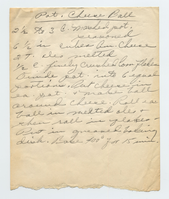 Pot. Cheese Ball
2 ½ to 3 C mashed pot.
seasoned
6 ½ in cubes Am Cheese
3 T oleo melted
½ C finely crushed Corn Flakes
Divide pot. into 6 equal
portions. Put cheese in
pot & make ball
around cheese. Roll
ball in melted oleo &
then roll in flakes
Put in greased baking
dish. Bake